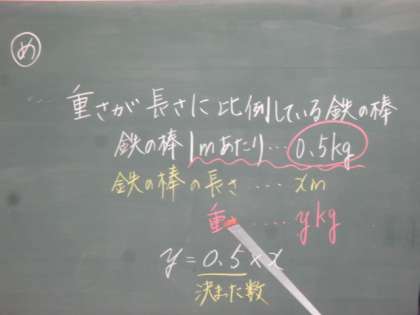 め
… 重さが長さに比例している鉄の棒
鉄の棒1mあたり…0.5kg
鉄の棒の長さ…xm
重…ykg
y=0.5×x
決まった数